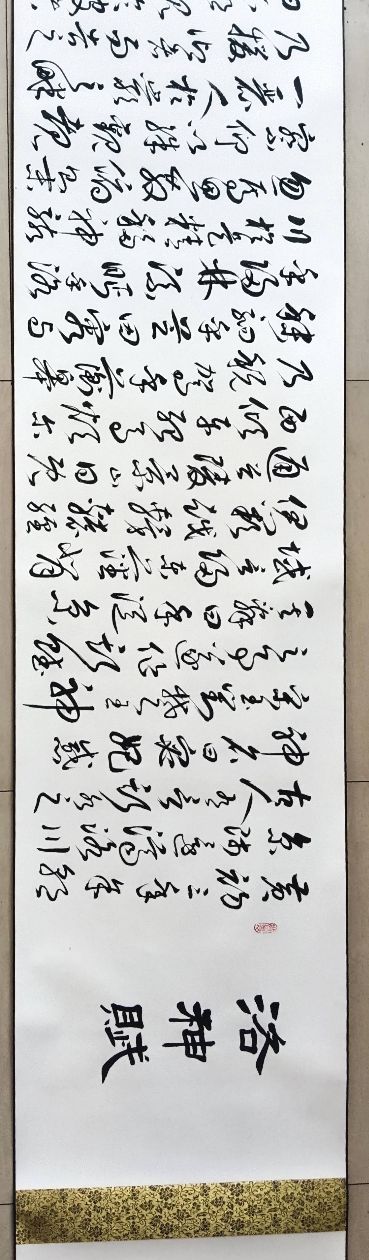 洛神賦
黃初三年余朝
京師還濟洛川
古人有言斯水之
神名曰宓妃感
宋玉對楚王神
女之事遂作斯賦
其辭曰余從京
域言歸東藩背
伊闕越轘轅經
通谷陵景山日既
西傾車殆馬煩爾
乃稅駕乎蘅皋
秣駟乎芝田容與
乎陽林流眄乎洛
川於是精移神駭
忽焉思散俯則未
察仰以殊觀睹
一麗人於巖之畔
乃援御者而告之